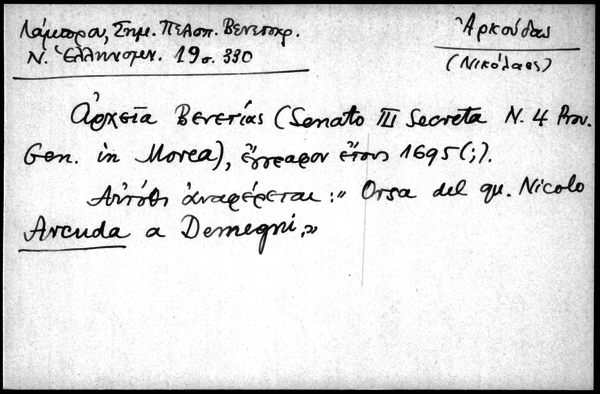 Λάμπρου, Σημ. Πελοπ. Βενετοκρ.
Ν. Ἑλληνομν. 19 σ. 330
Ἀρκούδας
(Νικόλαος)
Ἀρχεῖα Βενετίας (Senato III Secreta N. 4 Prov.
Gen. in Morea), ἔγγραφον ἔτους 1695(;).
Αὐτόθι ἀναφέρεται: " Orsa del qu. Nicolo
Arcuda a Demegni."